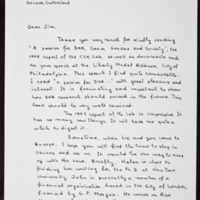 Geneva, Switzerland
Dear Jim,
Thank you very much for kindly reading
"A passion for DNA, Genes, Genomes and Society". The
1998 report of the CSH Lab, as well as documents and
on your speech at the Liberty Medal Address, City of
Philadelphia. This speech I find quite remarkable.
I read "A passion for DNA" with great pleasure and
interest. It is fascinating and important to show
how DNA research should proceed in the future. This
book should be very well received.
The 1999 report of the Lab is impressive. It
has so many new things. It will take me quite a
while to digest it.
Sometime, when Liz and you come to
Europe, I hope you will find the time to stop in
Geneva and see us. It would be one way to move
up with the news. Briefly, Helen is close to
finishing her writing for the Ph.D. at New York
University. John is presently a member of
financial organization based in the City of London,
financed by G.P. Morgan. He works in this